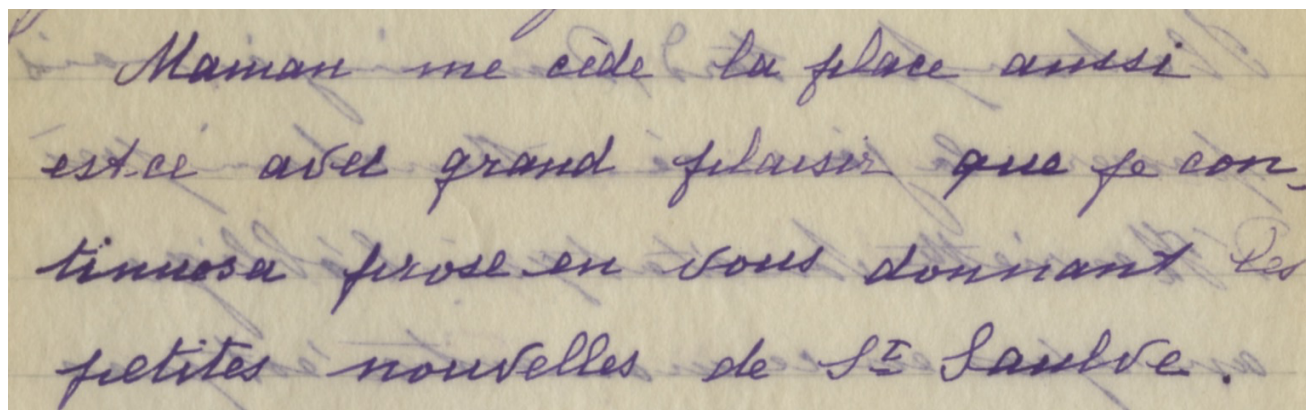 Maman me cède la place aussi
est.ce avec grand plaisir que je con,
tinue sa prose en vous donnant les
petites nouvelles de St Saulve.